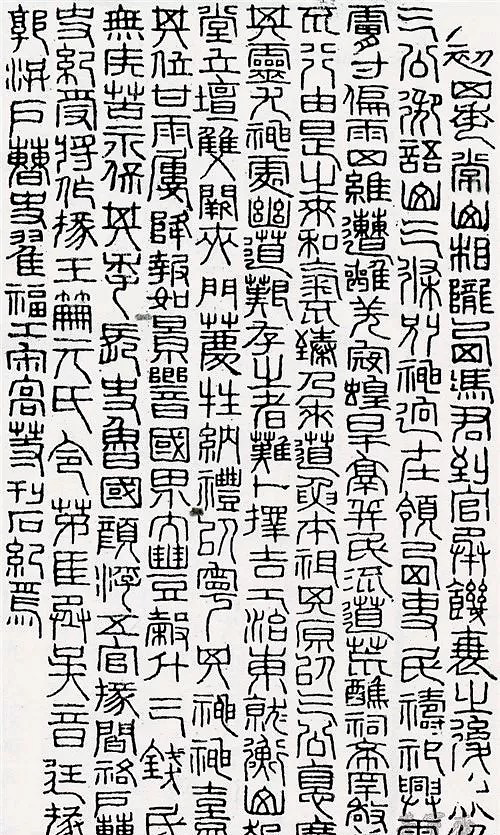 初四年常山相隴西馮君到官承饑衰之後
三公御語山三條別神迥在領西吏民禱祀興雲
膚寸偏雨四維遭離羌寇蝗旱鬲并民流道荒醮祠希罕
不行由是之來和氣不臻乃來道要本祖其原以三公德廣
其靈尤神處幽道艱存之者難卜擇吉治東就衡山起
堂立壇雙闕夾門薦牲納禮以寧其神神熹
其位甘雨屢降報如景響國界大豐穀斗三錢民
無疾苦永保其年長史魯國顏浡五官掾閻祐戶曹
史紀受將作掾王笧元氏令茅匡丞吳音廷掾
郭洪戶曹史翟福工宋高等刊石紀焉